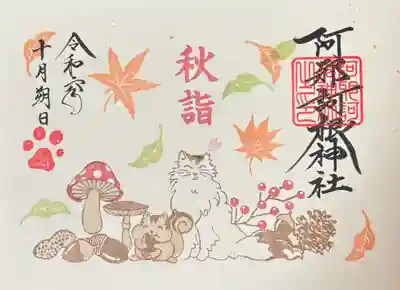 阿邪訶根神社
秋詣
令和
十月朔日